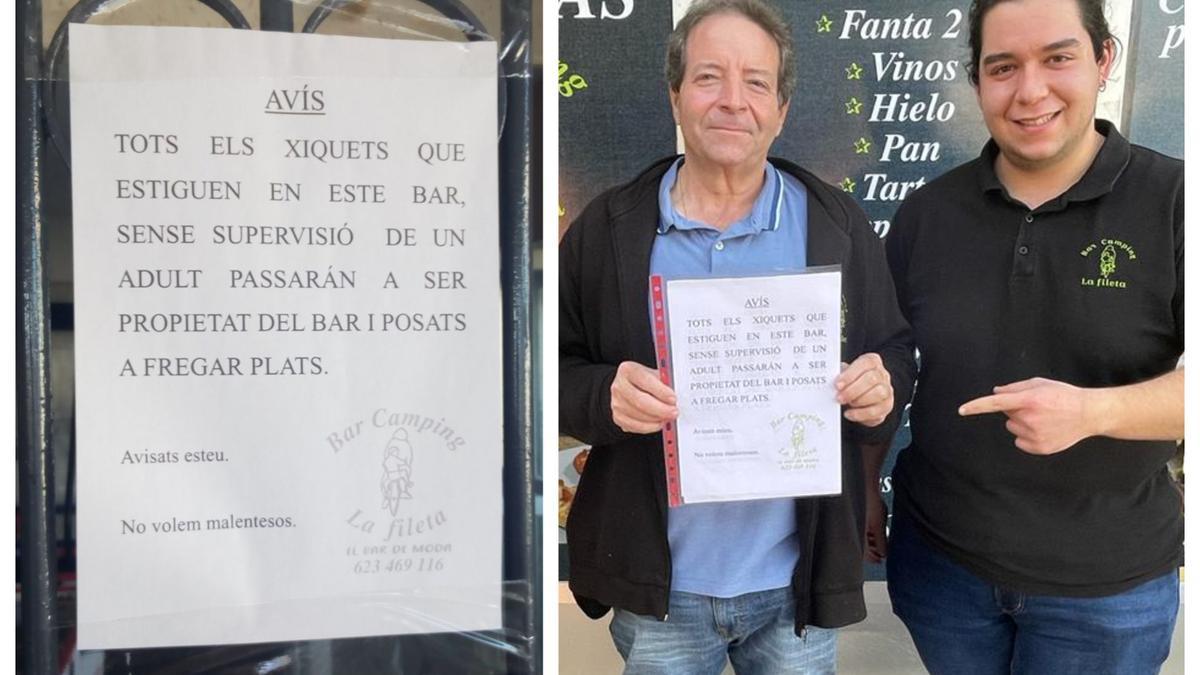 AVÍS
TOTS ELS XIQUETS QUE
ESTIGUEN EN ESTE BAR,
SENSE SUPERVISIÓ DE UN
ADULT PASSARÁN A SER
PROPIETAT DEL BAR I POSATS
A FREGAR PLATS.
Avisats esteu.
No volem malentesos.
Bar Camping
La fileta
EL BAR DE MODA
623 469 116
AS
Fanta 2
Vinos
Hielo
Pan
Tart
AVÍS
TOTS ELS XIQUETS QUE
ESTIGUEN EN ESTE BAR,
SENSE SUPERVISIÓ DE UN
ADULT PASSARÁN A SER
PROPIETAT DEL BAR I POSATS
A FREGAR PLATS.
Avisats esteu.
No volem malentesos.
Bar Camping
La fileta
EL BAR DE MODA
623 469 116
Bar Camping
La fileta